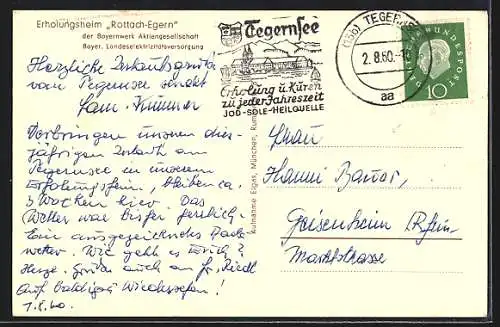 Erholungsheim „Rottach-Egern"
der Bayernwerk Aktiengesellschaft
Bayer. Landeselektrizitätsversorgung
Herzliche Urlaubsgrüße
vom Tegernsee sendet
Fam.
Verbringen unseren dies-
jährigen Urlaub am
Tegernsee in unserem
Erholungsheim, bleiben ca.
3 Wochen hier. Das
Wetter war bisher herrlich.
Ein ausgezeichnetes Bade-
wetter. Wie geht es Euch?
Herzl. Grüße auch an Fr. Riedl
Auf baldiges Wiedersehen!
1.8.60.
Tegernsee
Erholung u. Kuren
zu jeder Jahreszeit
JOD-SOLE-HEILQUELLE
(13b) TEGERNSEE
2.8.60.
aa
DEUTSCHE BUNDESPOST
10
Eigas, München,
Frau
Hanni Bauer,
Geisenheim/Rhein
Marktstrasse